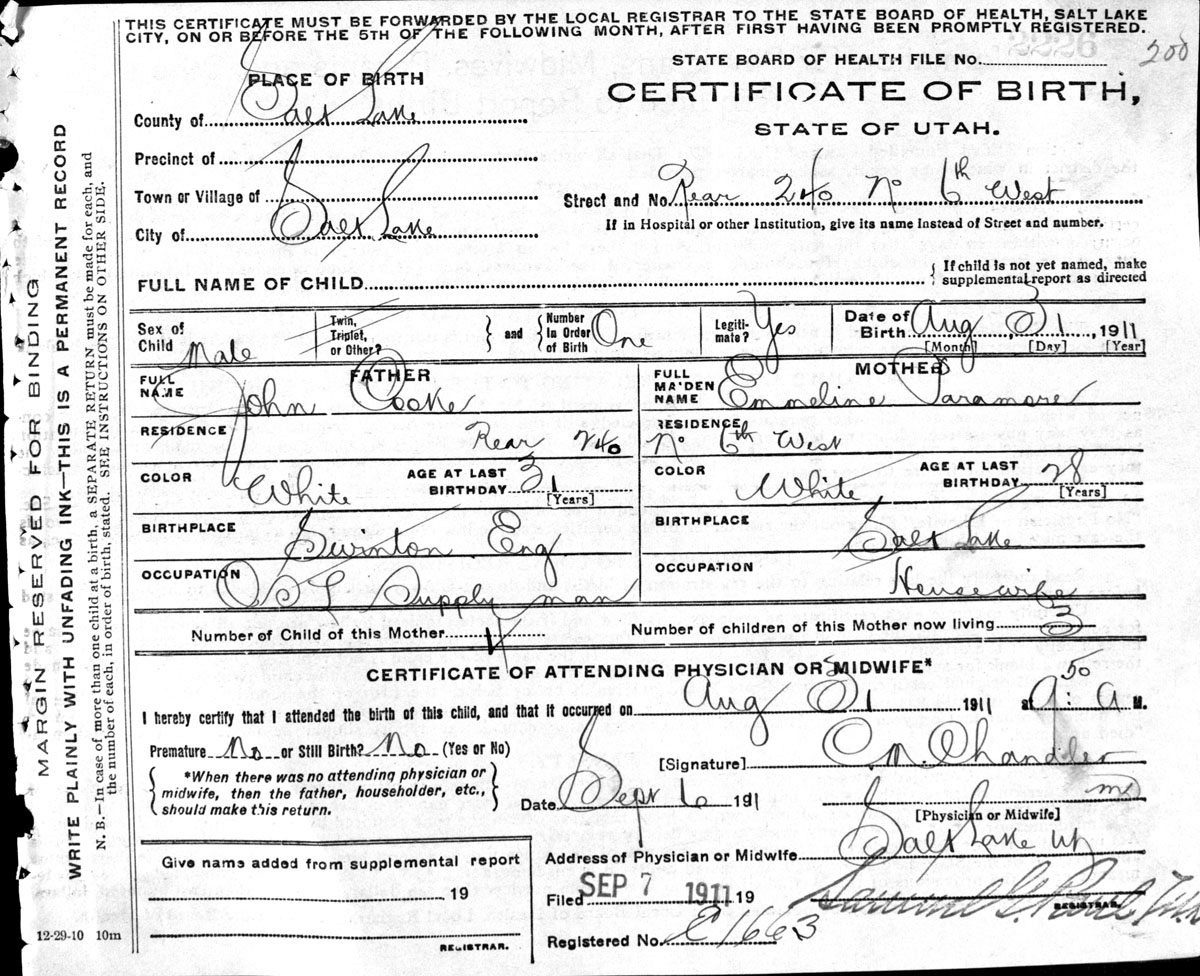 THIS CERTIFICATE MUST BE FORWARDED BY THE LOCAL REGISTRAR TO THE STATE BOARD OF HEALTH, SALT LAKE
CITY, ON OR BEFORE THE 5TH OF THE FOLLOWING MONTH, AFTER FIRST HAVING BEEN PROMPTLY REGISTERED.
STATE BOARD OF HEALTH FILE No. 200
PLACE OF BIRTH
CERTIFICATE OF BIRTH,
County of Salt Lake
STATE OF UTAH.
Precinct of
Town or Village of
Street and No. Rear 240 No 6th West
City of Salt Lake
If in Hospital or other Institution, give its name instead of Street and number.
FULL NAME OF CHILD
{ If child is not yet named, make
supplemental report as directed
Sex of Child Male
Twin, Triplet, or Other? } and { Number In Order of Birth One
Legitimate? Yes
Date of Birth Aug 31 1911
[Month] [Day] [Year]
FATHER
MOTHER
FULL NAME John Cooke
FULL MAIDEN NAME Emmeline Paramore
RESIDENCE Rear 240
RESIDENCE No 6th West
COLOR White AGE AT LAST BIRTHDAY 31 [Years]
COLOR White AGE AT LAST BIRTHDAY 28 [Years]
BIRTHPLACE Swinton Eng.
BIRTHPLACE Salt Lake
OCCUPATION O S L Supply man
OCCUPATION Housewife
Number of Child of this Mother 4
Number of children of this Mother now living 3
CERTIFICATE OF ATTENDING PHYSICIAN OR MIDWIFE*
I hereby certify that I attended the birth of this child, and that it occurred on Aug 31 1911 at 9:50 A. M.
Premature No or Still Birth? No (Yes or No)
[Signature] C. M. Chandler
{ *When there was no attending physician or
midwife, then the father, householder, etc.,
should make this return. }
Date Sept 6 1911
[Physician or Midwife]
Address of Physician or Midwife Salt Lake Ut
Give name added from supplemental report
19
REGISTRAR.
Filed SEP 7 1911 19
REGISTRAR.
Registered No. E1663
12-29-10 10m
MARGIN RESERVED FOR BINDING
WRITE PLAINLY WITH UNFADING INK—THIS IS A PERMANENT RECORD
N. B.—In case of more than one child at a birth, a SEPARATE RETURN must be made for each, and
the number of each, in order of birth, stated. SEE INSTRUCTIONS ON OTHER SIDE.